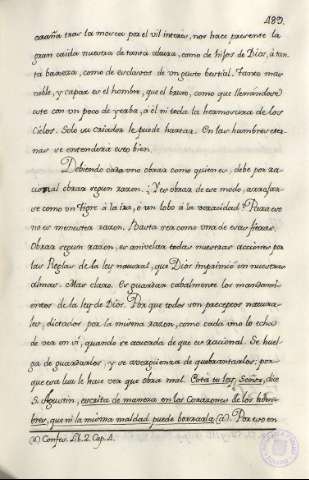 189.
araña tras la mosca por el vil interes, nos hace presente la
gran caida nuestra de tanta altura, como de hijos de Dios, á tan-
ta baxeza, como de esclavos de un gusto bestial. Tanto mas
noble, y capaz es el hombre, que el bruto, como que llenándose
este con un poco de yerba, a él ni toda la hermosura de los
Cielos. Solo su criador le puede hartar. En las lumbres eter-
nas se entenderá esto bien.
Debiendo cada uno obrar como quien es, debe por ra-
cional obrar segun razon. ¿Y es obrar de ese modo, arrojar-
se como un Tigre á la ira, ó un lobo á la voracidad? Para eso
no es menester razon. Basta ser como una de esas fieras.
Obrar segun razon, es nivelar todas nuestras acciones por
las Reglas de la ley natural, que Dios imprimió en nuestras
almas. Mas claro. Es guardar cabalmente los mandami-
entos de la ley de Dios. Por que todos son preceptos natura-
les, dictados por la misma razon, como cada uno lo echa
de ver en sí, quando se acuerda de que es racional. Se huel-
ga de guardarlos, y se avergüenza de quebrantarlos; por
que esa luz le hace ver que obra mal. Esta tu ley, Señor, dice
S. Agustin, escrita de manera en los Corazones de los hom-
bres, que ni la misma maldad puede borrarla (a). Por eso en
(a) Confes. Lib. 2. Cap. 4.